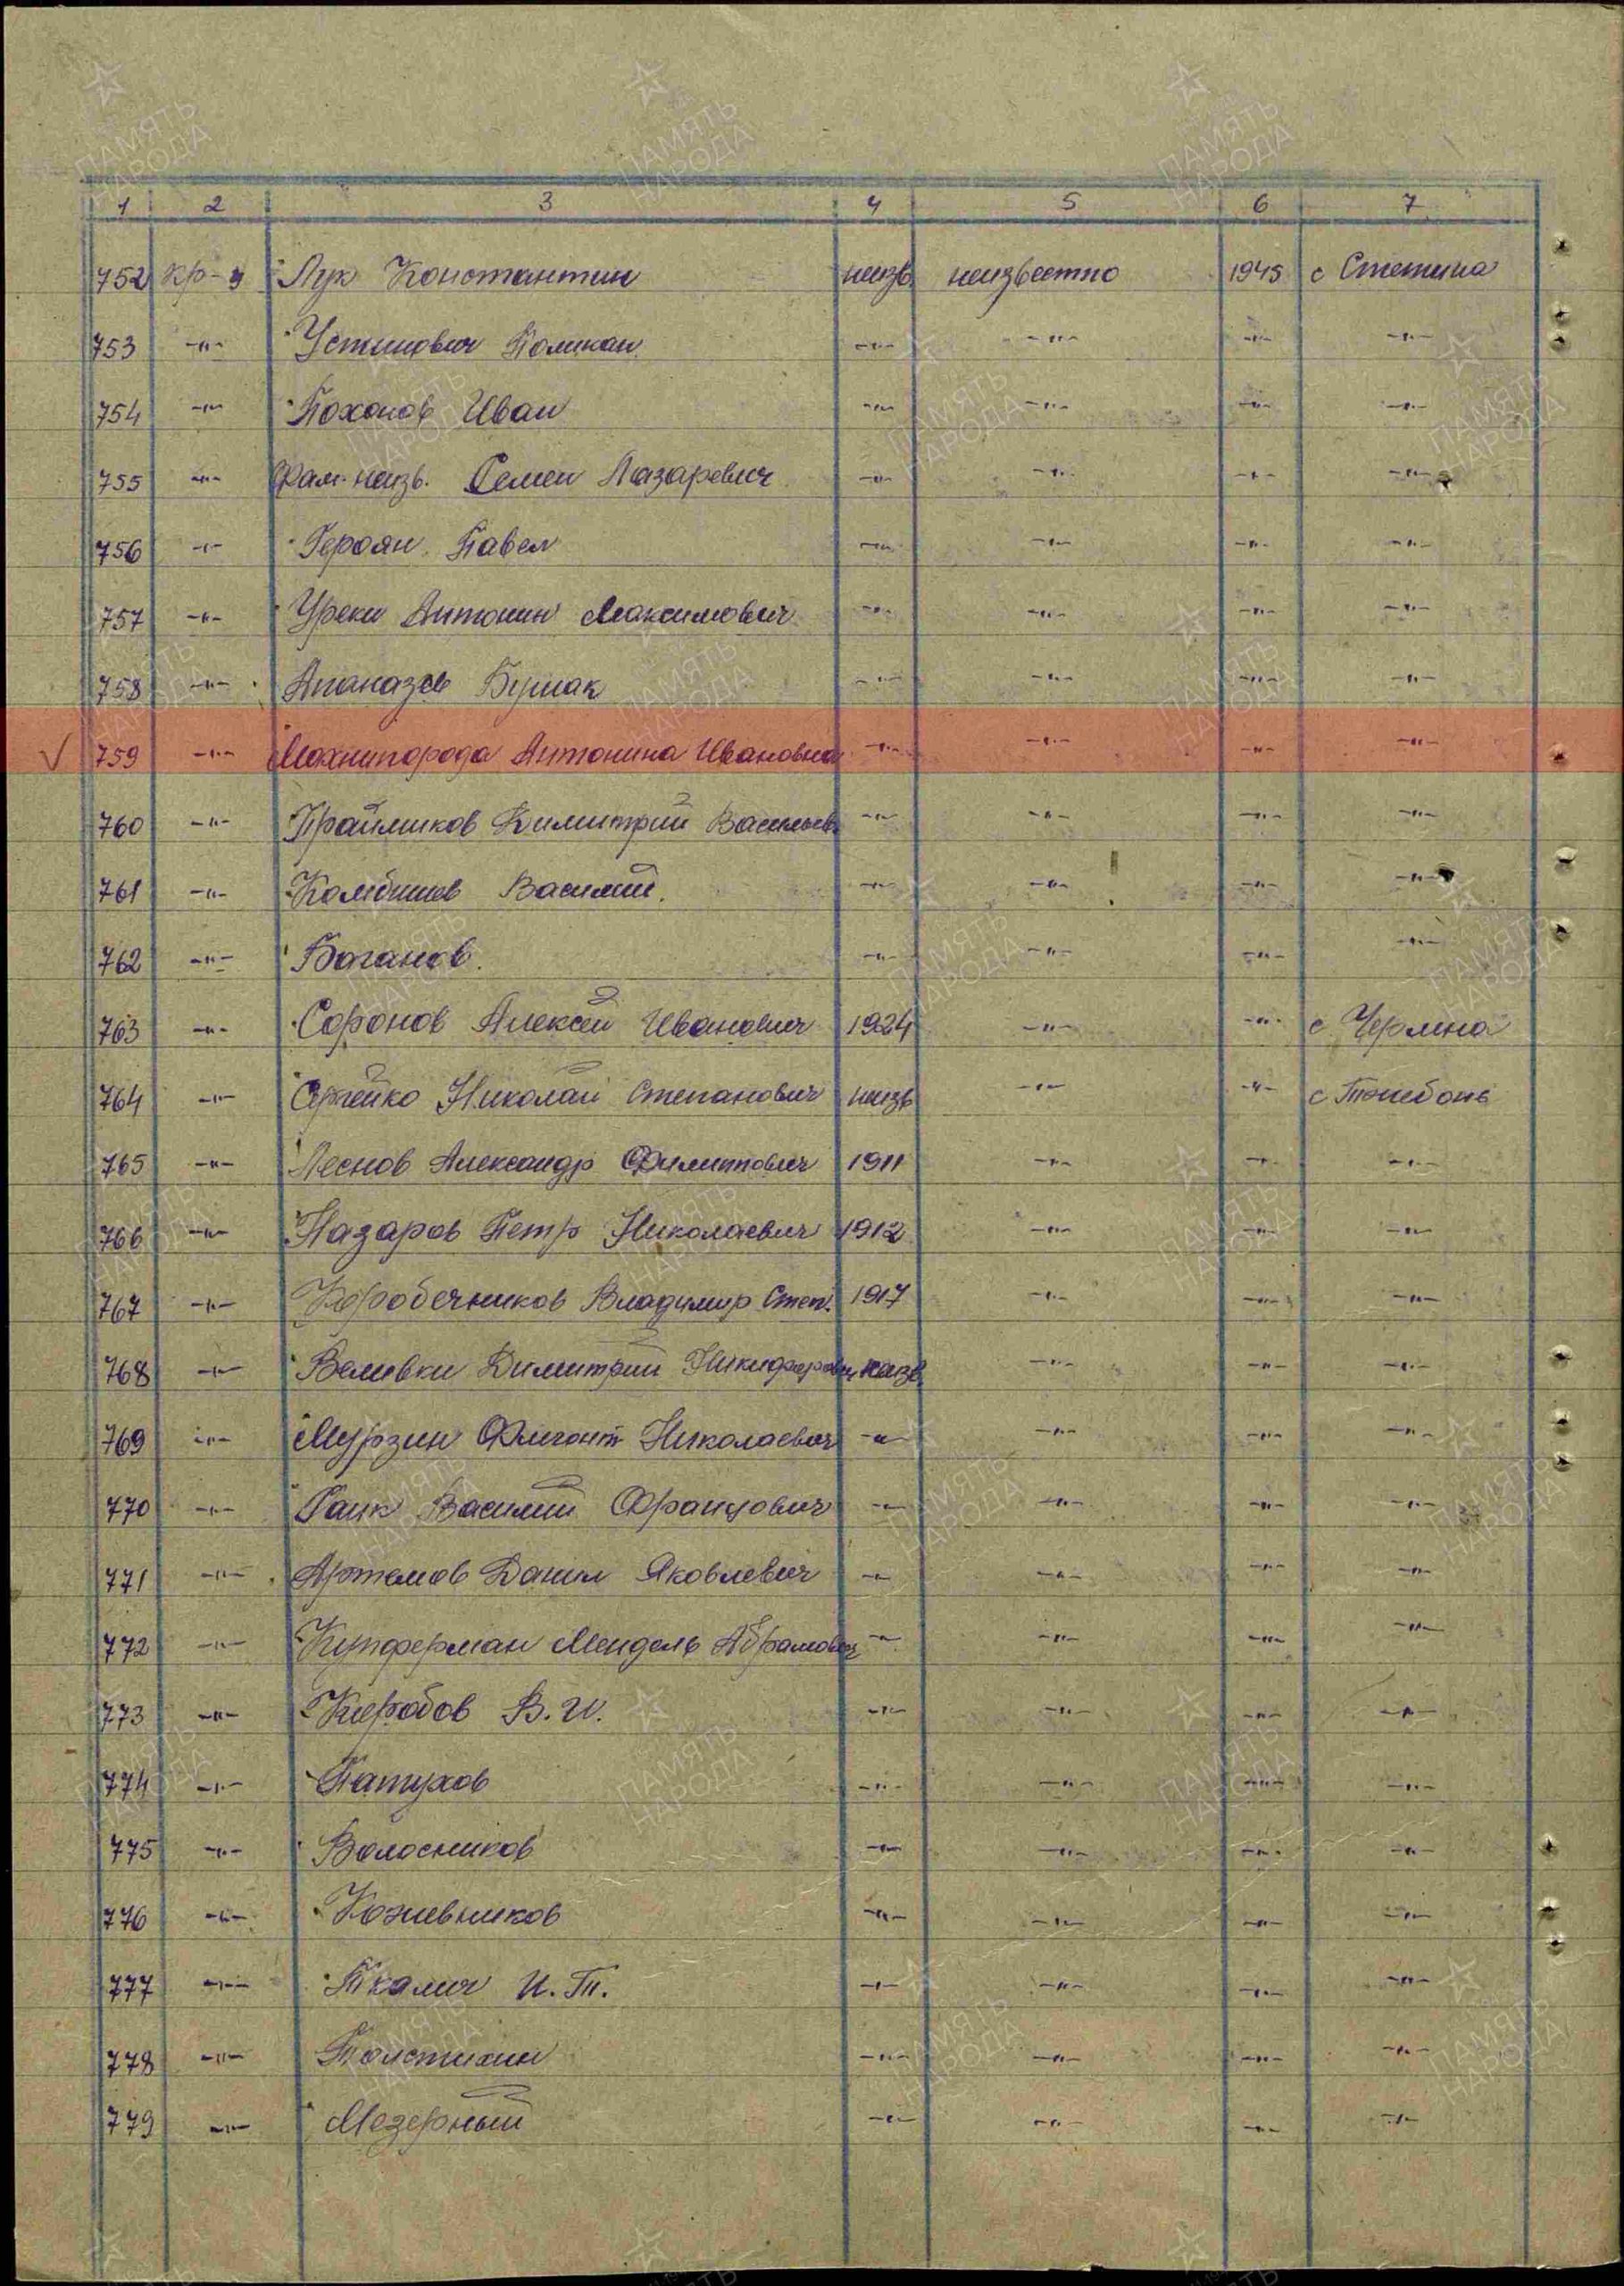 1 2 3 4 5 6 7
752 кр-ц Лук Константин неизв. неизвестно 1945 с Стетина
753 -"- Устинович Поликан -"- -"- -"- -"-
754 -"- Похонов Иван -"- -"- -"- -"-
755 -"- Фам. неизв. Семен Лазаревич -"- -"- -"- -"-
756 -"- Героян Павел -"- -"- -"- -"-
757 -"- Уреки Антонин Максимович -"- -"- -"- -"-
758 -"- Апаназев -"- -"- -"- -"-
√ 759 -"- Махнипорода Антонина Ивановна -"- -"- -"- -"-
760 -"- Димитрий Васильев. -"- -"- -"- -"-
761 -"- Василий. -"- -"- -"- -"-
762 -"- Боганов. -"- -"- -"- -"-
763 -"- Соронов Алексей Иванович 1924 -"- -"- с Чермена
764 -"- Сергейко Николай Степанович неизв -"- -"- с
765 -"- Леснов Александр Филиппович 1911 -"- -"- -"-
766 -"- Назаров Петр Николаевич 1912 -"- -"- -"-
767 -"- Коробечников Владимир Степ. 1917 -"- -"- -"-
768 -"- Веливки Димитрий Никифорович неизв. -"- -"- -"-
769 -"- Мурзин Флегонт Николаевич -"- -"- -"- -"-
770 -"- Ганк Василий Францович -"- -"- -"- -"-
771 -"- Артемов Данил Яковлевич -"- -"- -"- -"-
772 -"- Купферман Мендель Абрамович -"- -"- -"- -"-
773 -"- В. И. -"- -"- -"- -"-
774 -"- Патухов -"- -"- -"- -"-
775 -"- Волосников -"- -"- -"- -"-
776 -"- Кожевников -"- -"- -"- -"-
777 -"- Ткалич И. Т. -"- -"- -"- -"-
778 -"- Толстихин -"- -"- -"- -"-
779 -"- Мезерный -"- -"- -"- -"-
ПАМЯТЬ НАРОДА